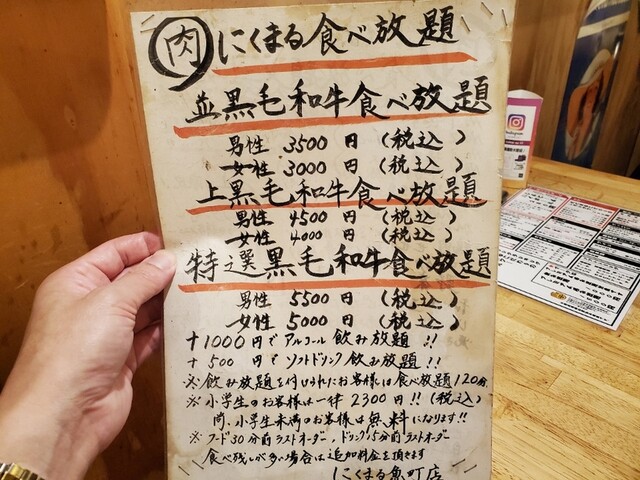 肉 にくまる食べ放題
並黒毛和牛食べ放題
男性 3500 円 (税込)
女性 3000 円 (税込)
上黒毛和牛食べ放題
男性 4500 円 (税込)
女性 4000 円 (税込)
特選黒毛和牛食べ放題
男性 5500 円 (税込)
女性 5000 円 (税込)
+1000円でアルコール飲み放題!!
+500円でソフトドリンク飲み放題!!
※飲み放題を付けられたお客様は食べ放題120分
※小学生のお客様は一律 2300円!!(税込)
尚、小学生未満のお客様は無料になります!!
※フード30分前ラストオーダー、ドリンク15分前ラストオーダー
食べ残しが多い場合は追加料金を頂きます
にくまる魚町店
Instagram